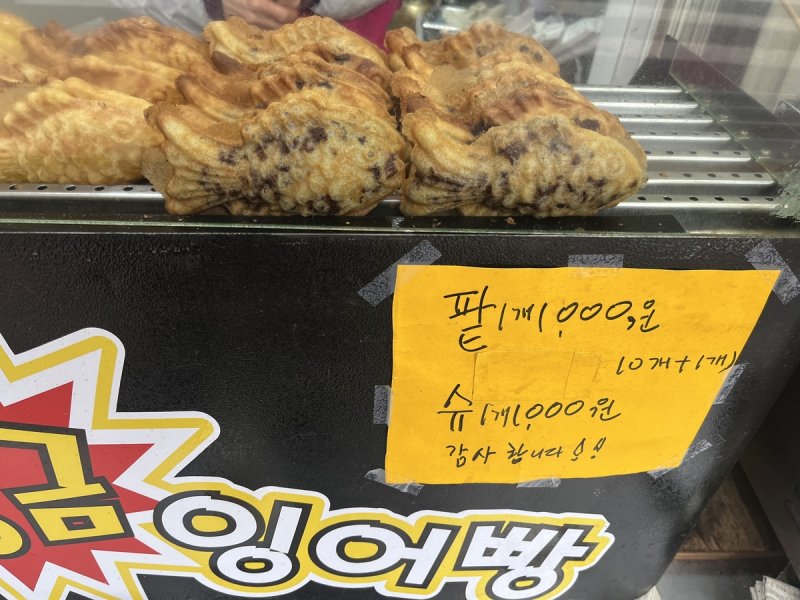 팥 1개 1,000원
10개+1개)
슈 1개 1,000원
감사합니다
금
잉어빵